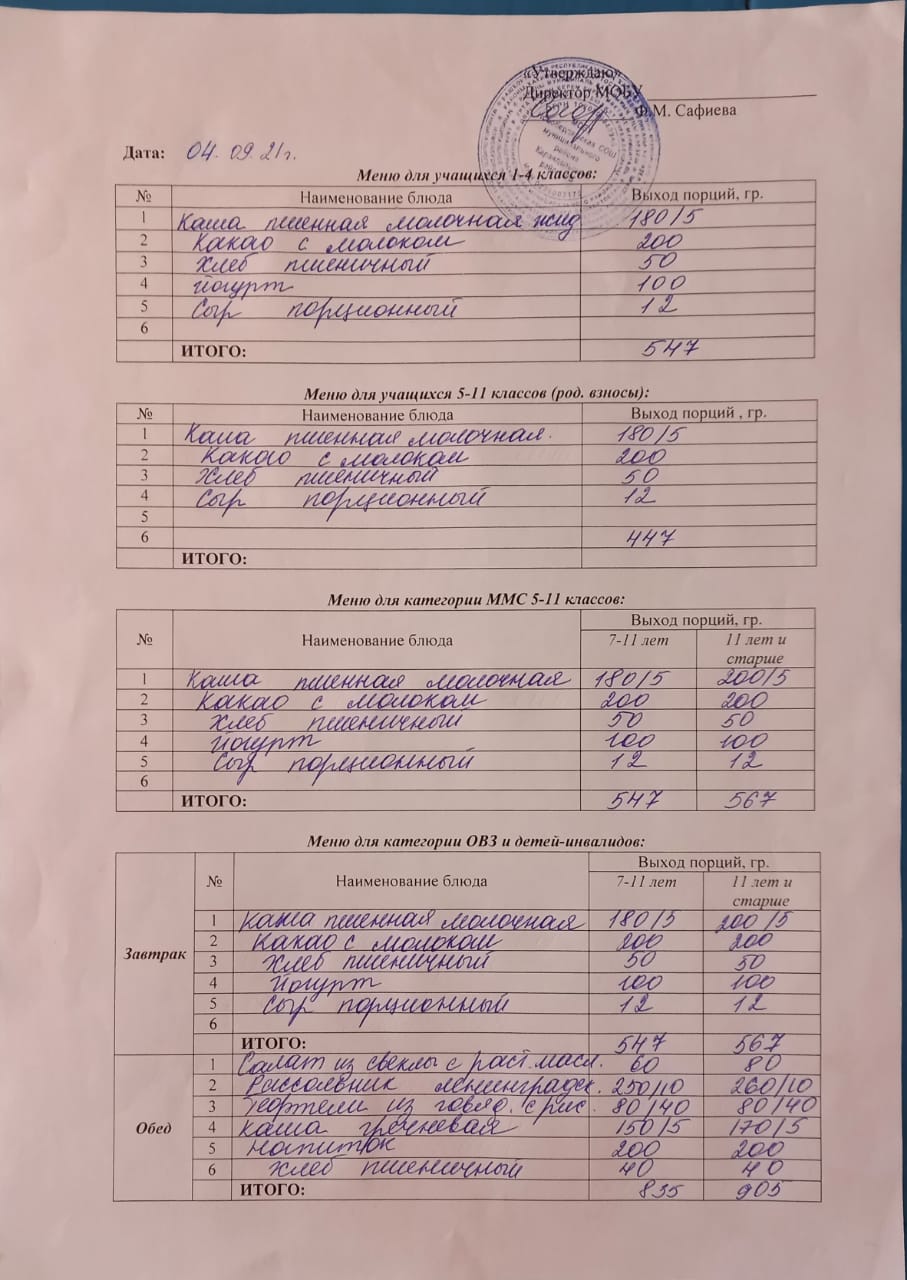 «Утверждаю»
Директор МОБУ
Ф.М. Сафиева
Дата: 04.09.21г.
Меню для учащихся 1-4 классов:
№ Наименование блюда Выход порций, гр.
1 Каша пшенная молочная жид 180/5
2 Какао с молоком 200
3 Хлеб пшеничный 50
4 Йогурт 100
5 Сыр порционный 12
6
ИТОГО: 547
Меню для учащихся 5-11 классов (род. взносы):
№ Наименование блюда Выход порций , гр.
1 Каша пшенная молочная. 180/5
2 Какао с молоком 200
3 Хлеб пшеничный 50
4 Сыр порционный 12
5
6 447
ИТОГО:
Меню для категории ММС 5-11 классов:
№ Наименование блюда Выход порций, гр.
7-11 лет 11 лет и
старше
1 Каша пшенная молочная 180/5 200/5
2 Какао с молоком 200 200
3 Хлеб пшеничный 50 50
4 Йогурт 100 100
5 Сыр порционный 12 12
6
ИТОГО: 547 567
Меню для категории ОВЗ и детей-инвалидов:
№ Наименование блюда Выход порций, гр.
7-11 лет 11 лет и
старше
Завтрак
1 Каша пшенная молочная 180/5 200/5
2 Какао с молоком 200 200
3 Хлеб пшеничный 50 50
4 Йогурт 100 100
5 Сыр порционный 12 12
6
ИТОГО: 547 567
Обед
1 Салат из свеклы с раст.масл. 60 80
2 Рассольник ленинградск. 250/10 260/10
3 Тефтели из говяд. с рис. 80/40 80/40
4 Каша гречневая 150/5 170/5
5 Напиток 200 200
6 Хлеб пшеничный 40 40
ИТОГО: 835 905